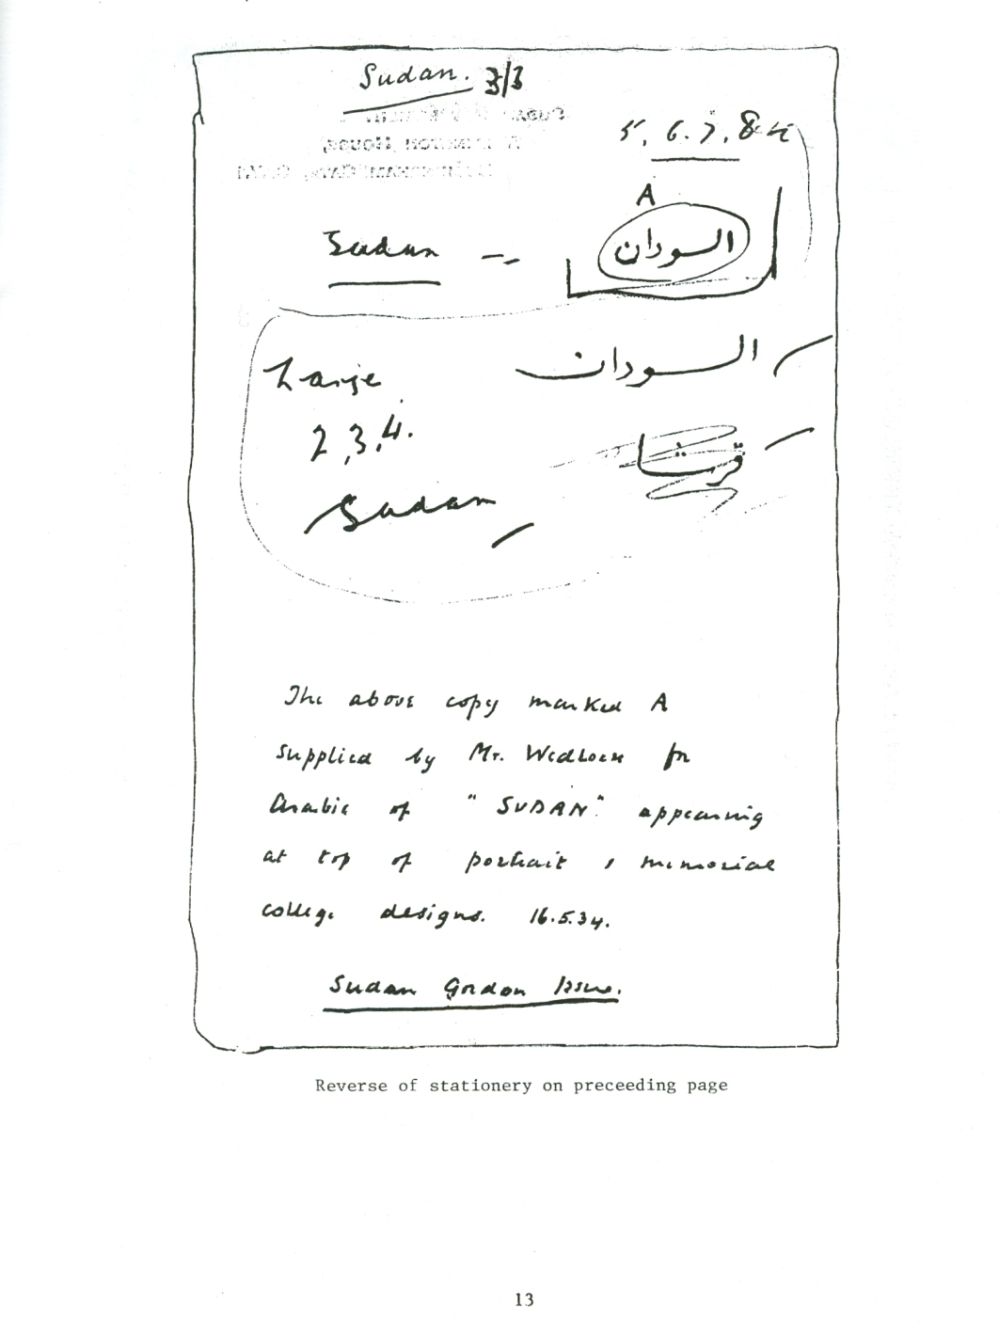 Sudan. 3/3
5, 6, 7, 8
A
Sudan -- السودان
Large السودان
2, 3, 4. قرشا
Sudan
The above copy marked A
supplied by Mr. Wedlock for
Arabic of "SUDAN." appearing
at top of portrait , memorial
college designs. 16.5.34.
Sudan Gordon Issue.
Reverse of stationery on preceeding page
13